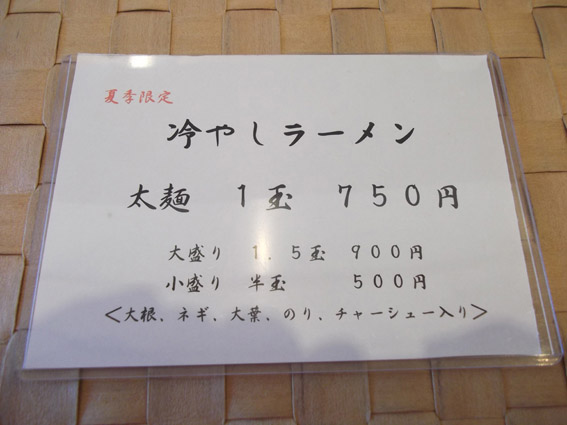 夏季限定
冷やしラーメン
太麺　１玉　７５０円
大盛り　１．５玉　９００円
小盛り　半玉　５００円
＜大根、ネギ、大葉、のり、チャーシュー入り＞